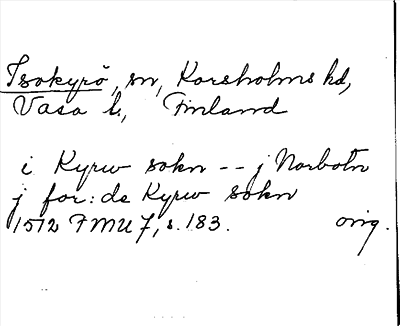 Isokyrö, sn, Korsholms hd,
Vasa l., Finland
i Kyrw sokn -- j Norbotn
j for: de Kyrw sokn
1512 FMU 7, s. 183. orig.